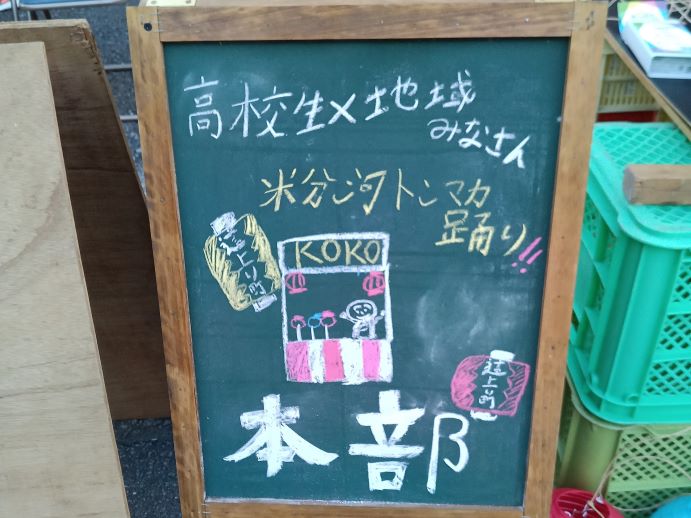 高校生×地域
みなさん
米分河トンマカ
踊り!!
KOKO
辻上り町
辻上り町
本部